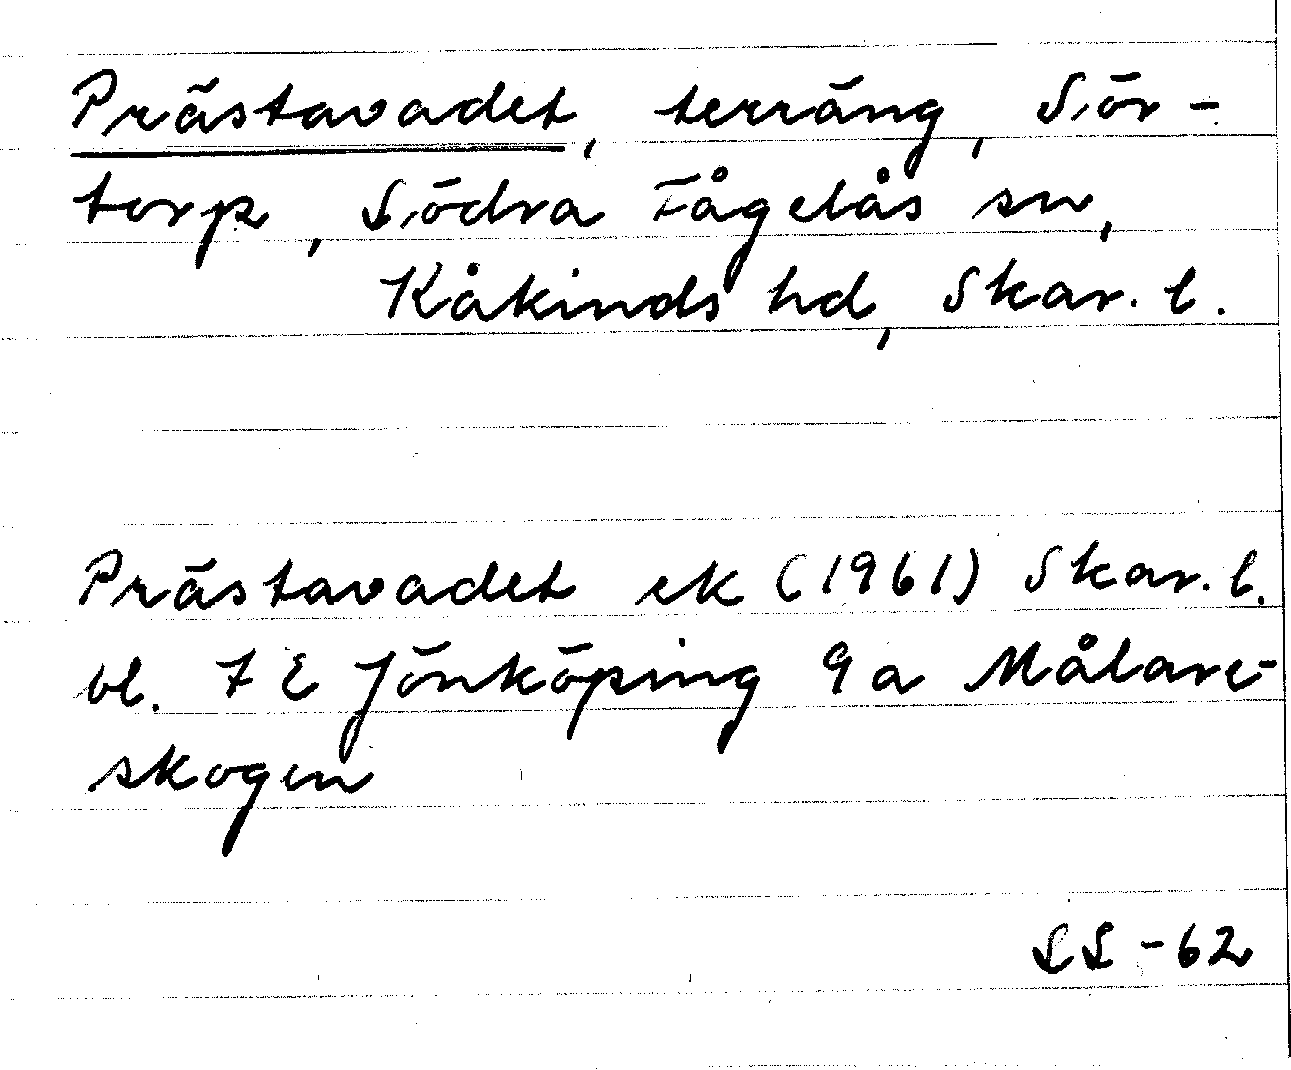 Prästavadet, terräng, Sör-
torp, Södra Fågelås sn,
Kåkinds hd, Skar. l.
Prästavadet ek (1961) Skar. l.
bl. 7 E Jönköping 9 a Målare-
skogen
SS -62